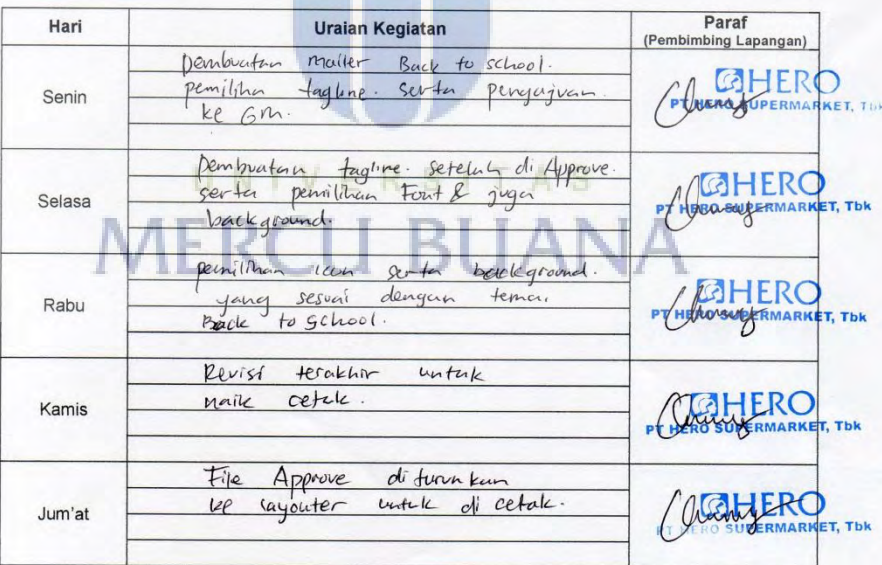 Hari Uraian Kegiatan Paraf
(Pembimbing Lapangan)
Senin
Pembuatan mailer Back to school.
pemilihan tagline. serta pengajuan.
ke GM.
HERO
PT HERO SUPERMARKET, Tbk
Selasa
Pembuatan tagline. setelah di Approve.
serta pemilihan Font & juga
background.
HERO
PT HERO SUPERMARKET, Tbk
UNIVERSITAS
MERCU BUANA
Rabu
pemilihan icon serta background.
yang sesuai dengan tema.
Back to School.
HERO
PT HERO SUPERMARKET, Tbk
Kamis
Revisi terakhir untuk
naik cetak.
HERO
PT HERO SUPERMARKET, Tbk
Jum'at
File Approve di turunkan
ke layouter untuk di cetak.
HERO
PT HERO SUPERMARKET, Tbk